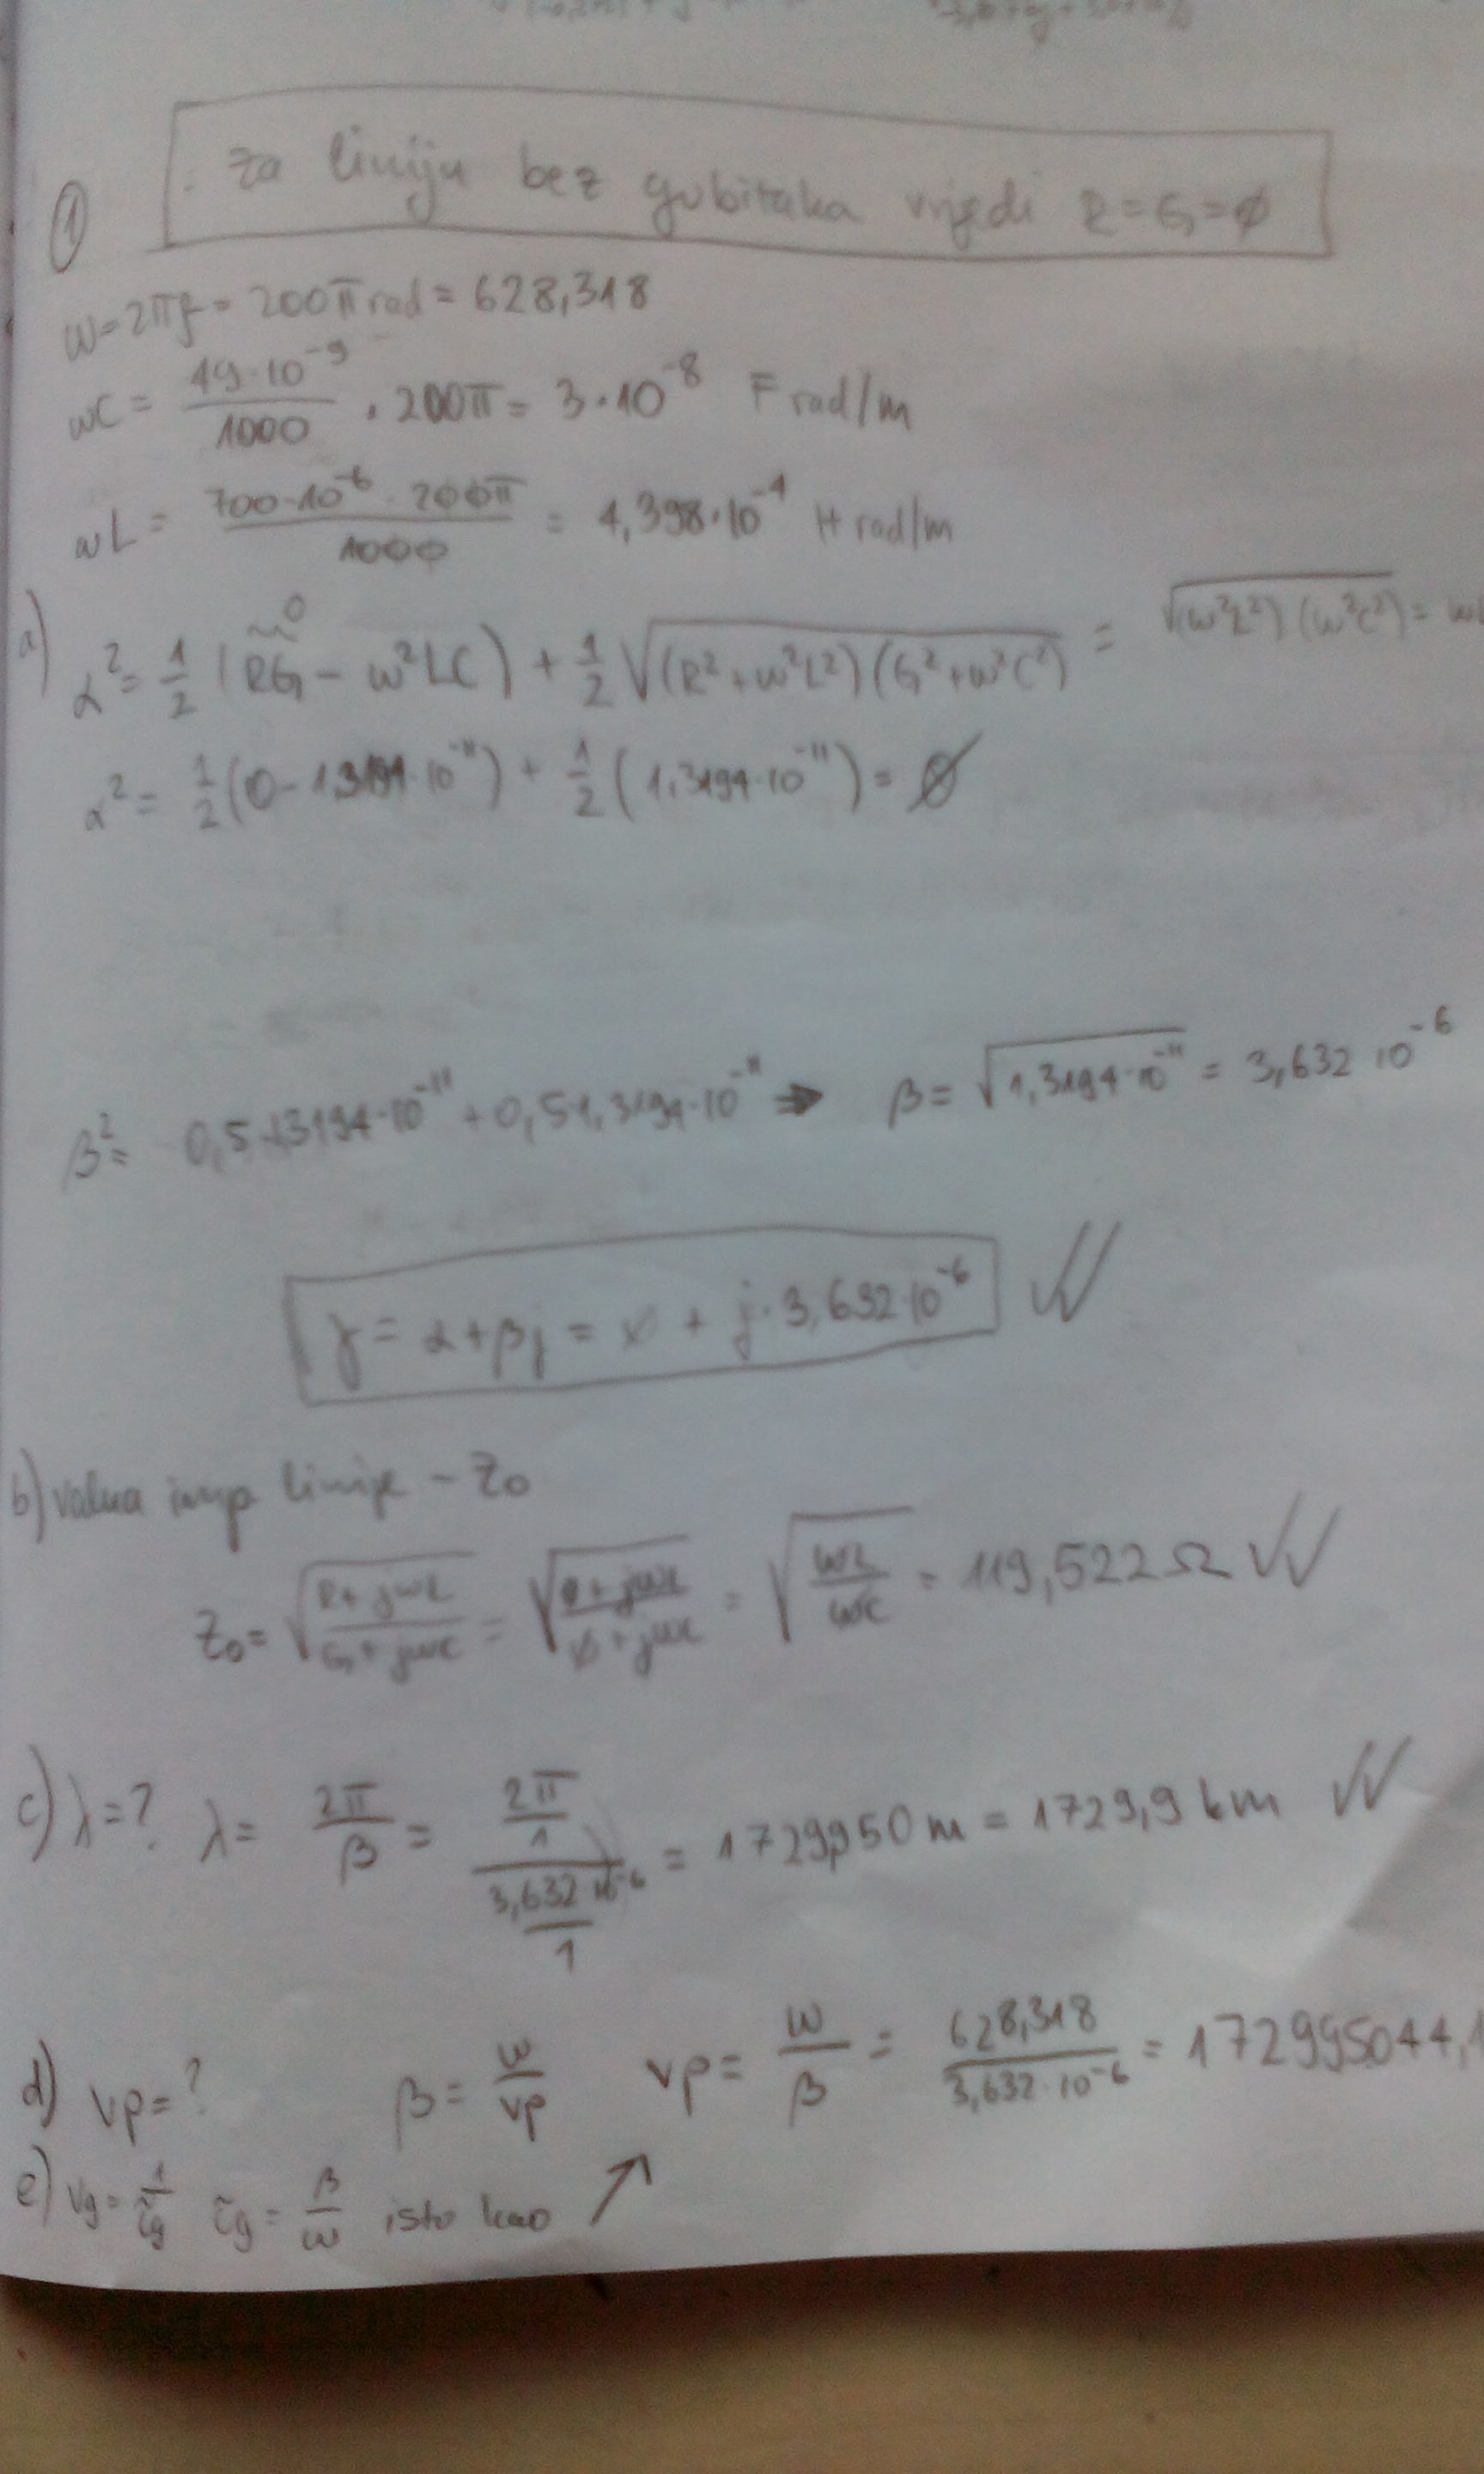 ① : za liniju bez gubitaka vrijedi R=G=∅
ω=2πf= 200π rad = 628,318
ωC = 49·10⁻⁹/1000 · 200π = 3·10⁻⁸ F rad/m
ωL = 700·10⁻⁶·200π/1000 = 4,398·10⁻⁴ H rad/m
a) α² = 1/2 (RG − ω²LC) + 1/2 √((R²+ω²L²)(G²+ω²C²)) = √((ω²L²)(ω²C²)) =
α² = 1/2 (0 − 1,3194·10⁻¹¹) + 1/2 (1,3194·10⁻¹¹) = ∅
β² = 0,5·1,3194·10⁻¹¹ + 0,5·1,3194·10⁻¹¹ ⇒ β = √(1,3194·10⁻¹¹) = 3,632 10⁻⁶
γ = α+βj = ∅ + j·3,632·10⁻⁶
b) valna imp linije – Z₀
Z₀ = √((R+jωL)/(G+jωC)) = √((∅+jωL)/(∅+jωC)) = √(ωL/ωC) = 119,522 Ω
c) λ=? λ = 2π/β = (2π/1)/(3,632·10⁻⁶/1) = 1729950 m = 1729,9 km
d) vp=? β = ω/vp vp = ω/β = 628,318/3,632·10⁻⁶ = 172995044,1
e) vg = 1/τg τg = β/ω isto kao ↗